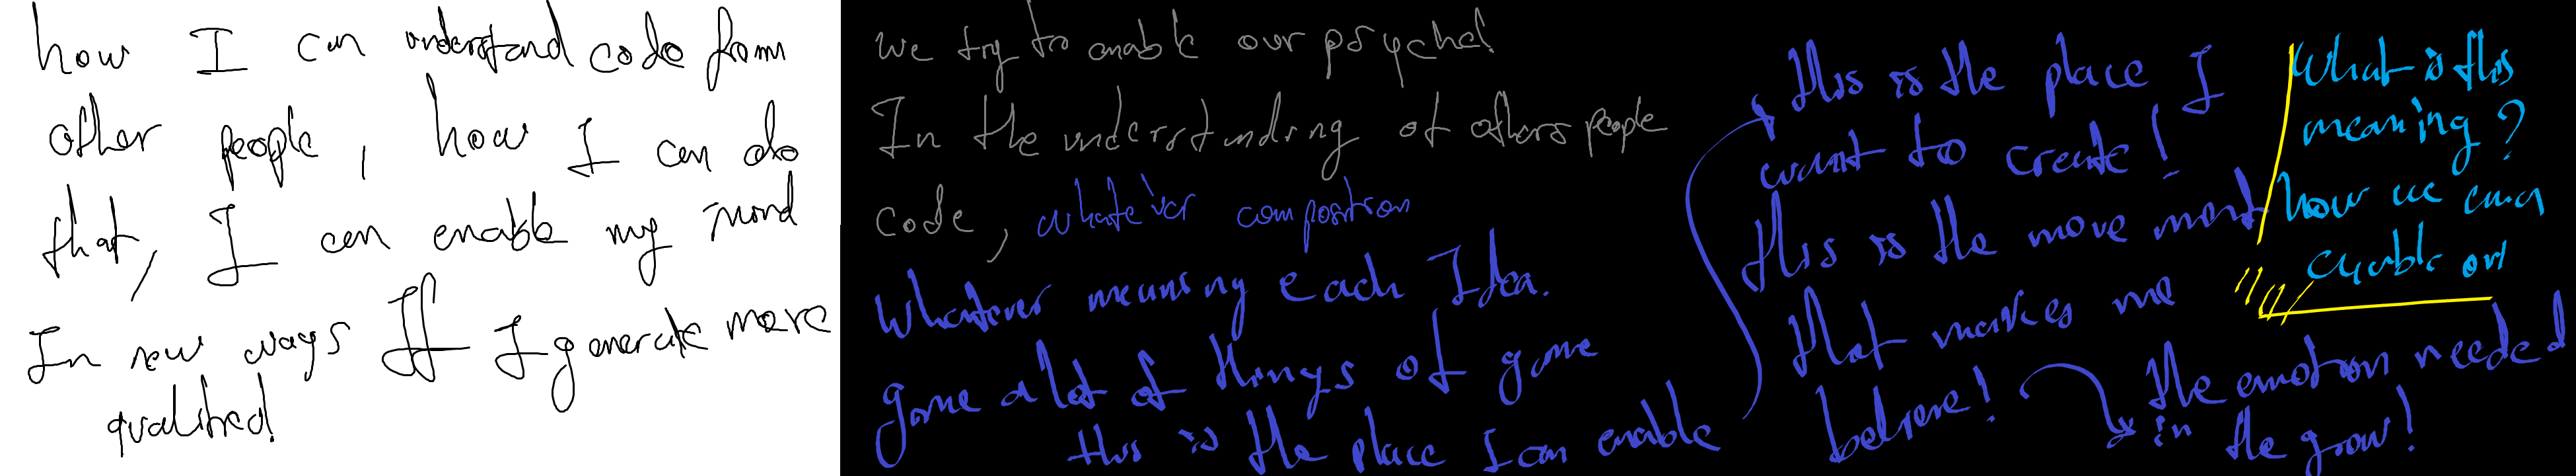 how I can understand code from
other people, how I can do
that, I can enable my mind
In new ways If I generate more
qualited!
we try to enable our psyche!
In the understanding of others people
code, whatever composition
Whatever meaning each Idea.
game a lot of things of game
this is the place I can enable
this is the place I
want to create!
this is the move ment
that makes me
believe!
the emotion needed
in the grow!
What is this
meaning?
how we can